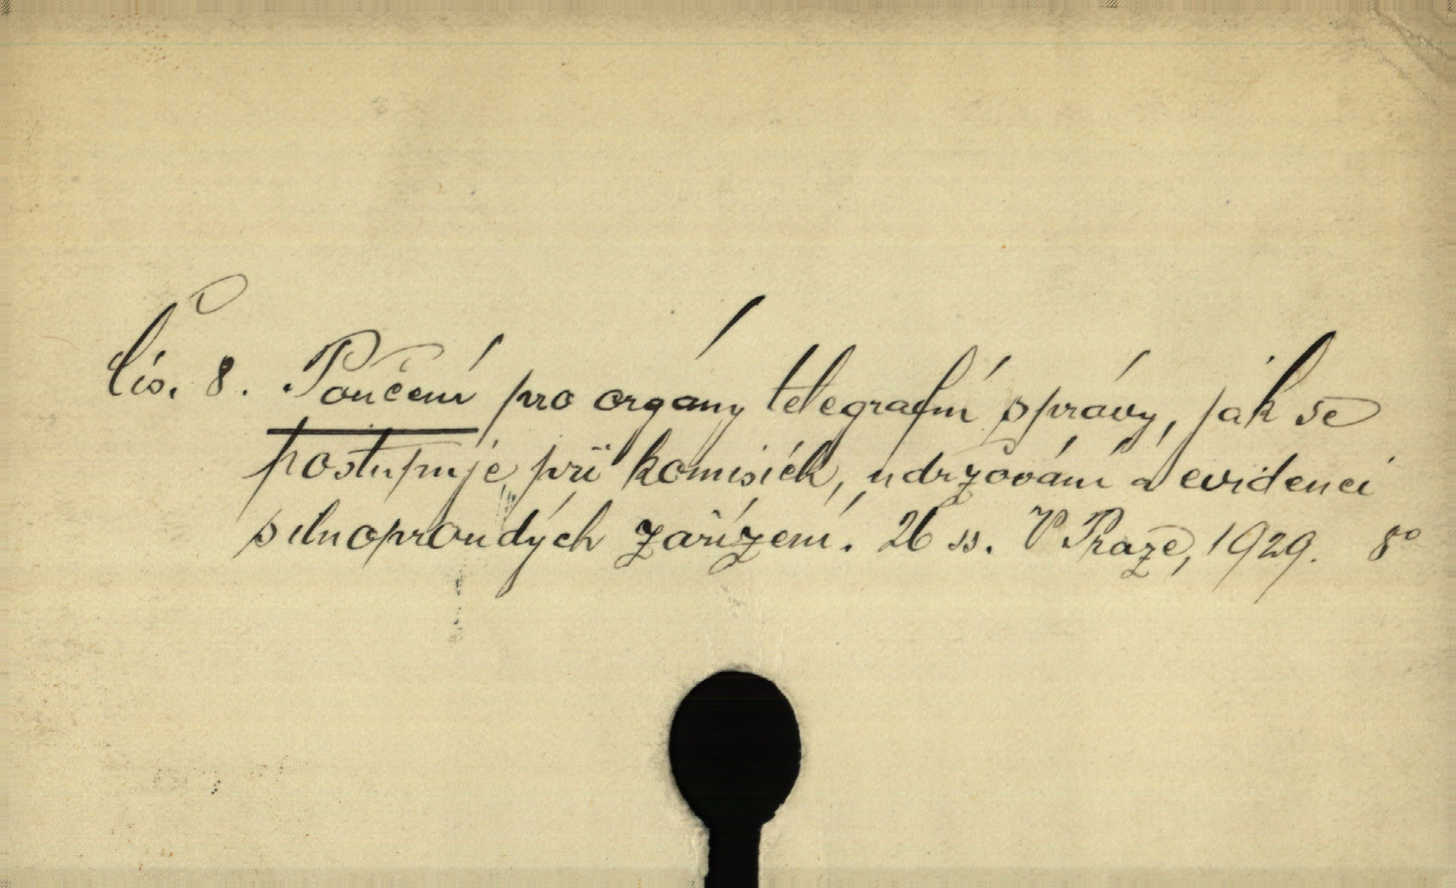 Čís. 8. Poučení pro orgány telegrafní správy, jak se
postupuje při komisích, udržování a evidenci
silnoproudých zařízení. 26 ss. V Praze, 1929. 8°